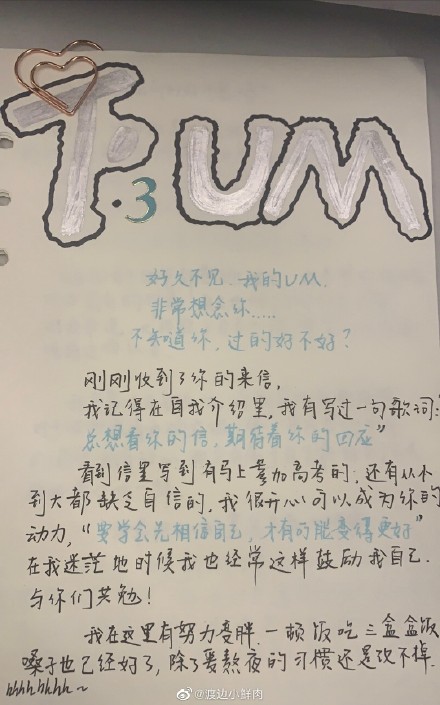 下·3 UM
好久不见，我的UM.
非常想念你.....
不知道你，过的好不好？
刚刚收到了你的来信，
我记得在自我介绍里，我有写过一句歌词："
总想看你的信，期待着你的回应"
看到信里写到有马上参加高考的，还有从小
到大都缺乏自信的，我很开心可以成为你的
动力，"要学会先相信自己，才有可能变得更好"
在我迷茫地时候我也经常这样鼓励我自己.
与你们共勉！
我在这里有努力变胖，一顿饭吃三盒盒饭
嗓子也已经好了，除了爱熬夜的习惯还是改不掉.
hhhhhhhh~
@渡边小鲜肉